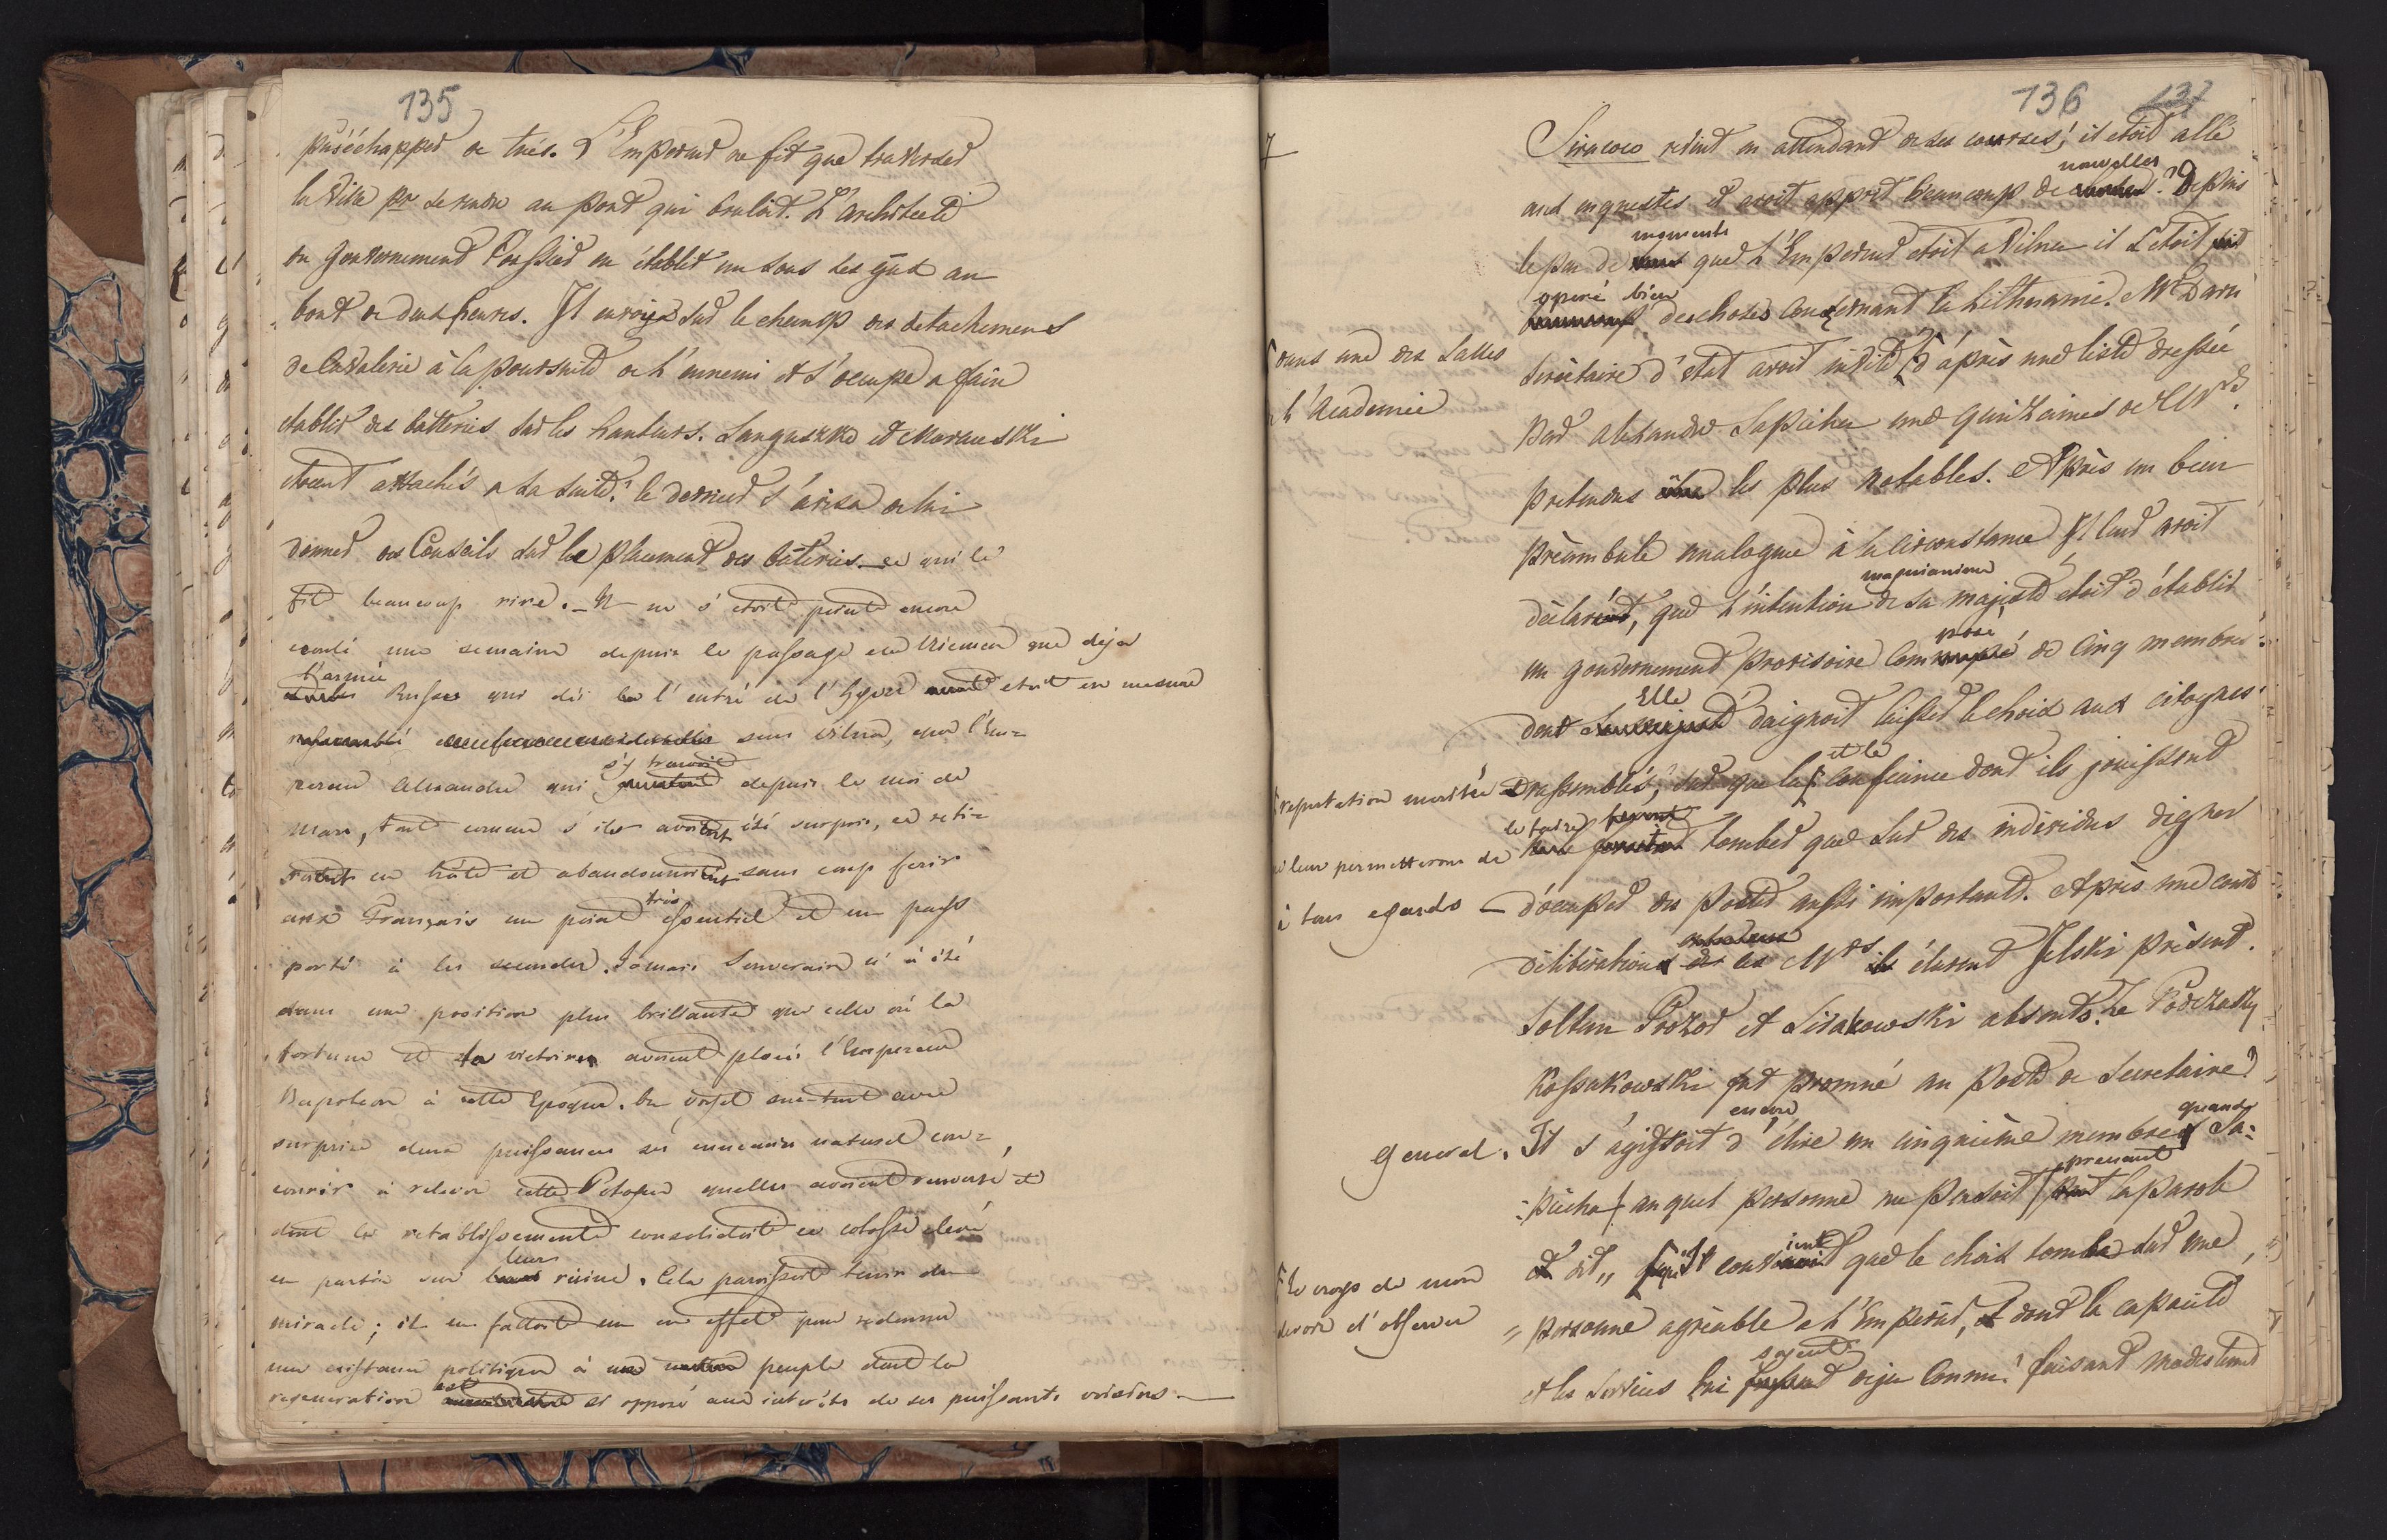 135
pus échapper ou tués. L'Empereur ne fit que traverser
la Ville pr se rendre au pont qui bruloit. L'architecte
du Gouvernement Poussier en établit un sous ses yeux au
bout de deux heures. Il envoya sur le champ des detachemens
de Cavalerie à la poursuite de l'ennemi et s'occupa a faire
etablir des batteries sur les hauteurs. Sanguszko et Morawski
etoient attachés a sa suite. le dernier s'avisa de lui
donner des Conseils sur le placement des batteries ce qui le
fit beaucoup rire. – Il ne s'etoit point encore
ecoulé une semaine depuis le passage du Niemen que deja
l'armée
Russe qui dès l'entré de l'hyver etoit en mesure
rassemblé sous Vilna, que l'Em=
s'y trouvoit
pereur Alexandre qui depuis le moi de
Mars, tout comme s'ils avoient été surpris, se reti=
roient en hâte et abandonnoient sans coup ferir
très
aux Français un point essentiel et un pays
porté à les seconder. Jamais Souverain n'a été
dans une position plus brillante que celle où la
fortune et la victoire avoient placé l'Empereur
Napoleon à cette Epoque. On voyoit avec
surprise deux puissances ses ennemies naturel con=
courir à relever cette Pologne quelles avoient renversé et
dont le retablissement consolidoit ce colosse elevé
leur
en partie sur ruine. Cela paroissoit tenir du
miracle; il en falloit un en effet pour redonner
une existance politique à un peuple dont la
est
regeneration si opposé aux interêts de ses puissants voisins. —
136 137
Siruococo revint en attendant de ses courses; il etoit allé
nouvelles
aux enquettes et avoit appris beaucoup de Depuis
moments
le peu de que L'Empereur etoit a Vilna il s'etoit
operé bien
des choses concernant la Lithuanie. Mr Daru
dans une des Salles
Secretaire d'etat avoit invité d'après une liste dressée
de l'Academie
par Alexandre Sapieha une quinzaines de Mrs
pretendus les plus notables. Après un bien
préambule analogue à la circonstance Il leur avoit
magnianime
declaré, que L'intention de sa majesté etoit d'établir
posé
un gouvernement provisoire Com de Cinq membres
Elle
dont daignoit laisser le choix aux citoyens
et la
reputation meritée rassemblés; sur que la confiance dont ils jouissent
le faire
leur permetterons de tomber que sur des individus dignes
à tous egards – d'occuper des postes aussi importants. Après une courte
délibération ces Mrs élurent Jelski présent.
Soltan Prozor et Sirakowski absents. Le Podczaszy
Kossakowski fut promu au poste de Secretaire
encore quand
General. Il s'agissoit d'élire un cinquième membre Sa=
prenant
=pieha auquel personne ne pensoit la parole
dit „ convient que le choix tombe sur une
de mon
devoir d'observer
„ personne agréable a L'Empereur, et dont la capacité
soyent
et les services lui deja connu! faisant modestement